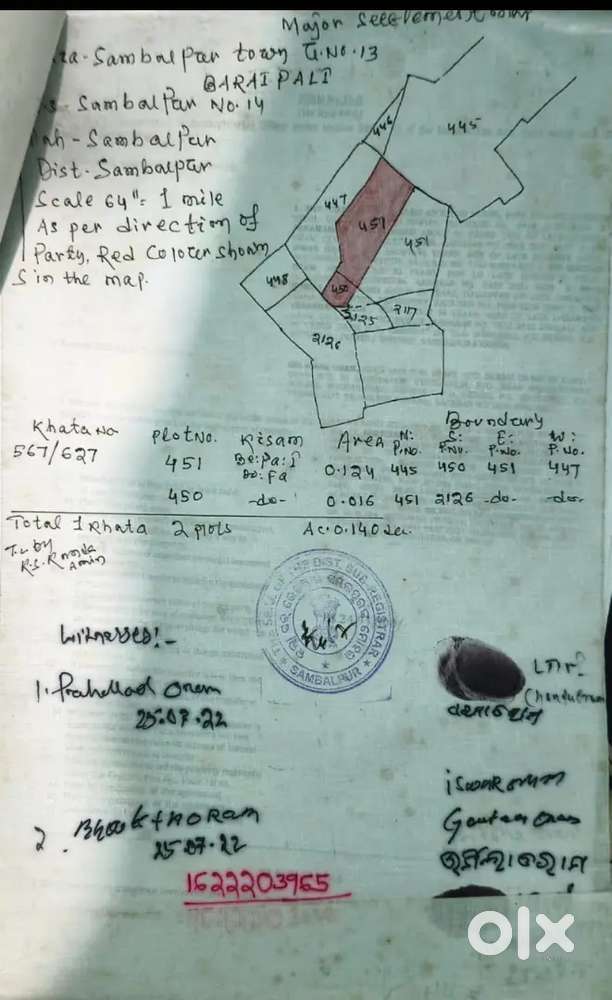 Major Settlement
Sambalpur town U.No.13
BARAIPALI
Sambalpur No.14
Sambalpur
Dist-Sambalpur
Scale 64"= 1 mile
As per direction of
Party, Red Colour shown
in the map.
446
445
447
451
451
448
450
2125
2117
2126
Boundary
Khata No Plot No. Kisam Area N: P.No. S: P.No. E: P.No. W: P.No.
567/627
451 0.124 445 450 451 447
450 -do- 0.016 451 2126 -do- -do-
Total 1 Khata 2 plots Ac.0.140 dec.
Tr. by
Amin
THE SEAL OF THE DIST. SUB. REGISTRAR
SAMBALPUR
Witnesses:-
1. Prahallad Oram
25.07.22
LTI of
iswar oram
Goutam Oram
2. Bhakta ORam
25.07.22
1622203965
olx